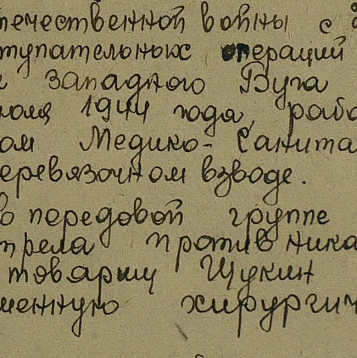 течественной войны с
тупательных операций
Западного Буга
юля 1944 года, рабо
ом Медико-Санита
еревязочном взводе.
во передовой группе
трела противника
товарищ Щукин
менную хирургич